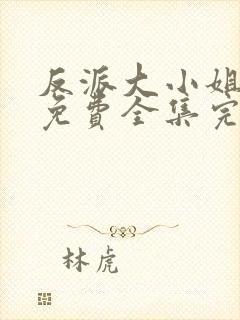 反派大小姐
免費全集完
林虎